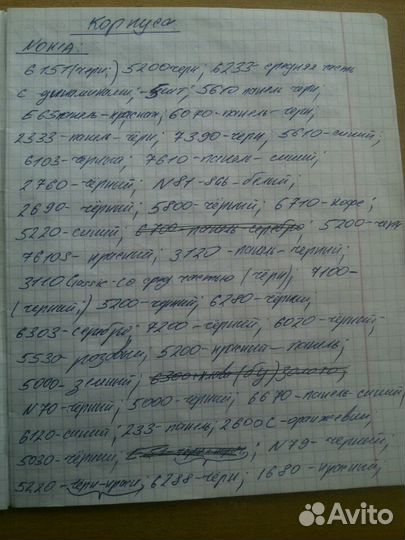 Корпуса
NOKIA:
6151 (черн.) 5200 черн; 6233 - средняя часть
с динамиками; -5шт; 5610 панель черн;
панель - красная; 6070 - панель - черн;
2333 - панель - черн; 7390 - черн; 5610 - синий;
6103 - черный; 7610 - панель - синий;
2760 - черный; N81 - 8Gb - белый;
2690 - чёрный; 5800 - чёрный; 6710 - кофе;
5220 - синий; 6700 - панель - серебро; 5200 - черн
7610S - красный; 3120 - панель - черный;
3110 Classic - со сред частью (черн); 7100 -
(черный;) 5200 - черный; 6280 - чёрный;
6303 - серебро; 7200 - чёрный; 6020 - черный -
5530 розовый; 5200 - красная - панель;
5000 - зелёный; 6300 (б/у) золото;
N70 - чёрный; 5000 - черный; 6670 - панель - синий;
6120 - синий; 233 - панель; 2600C - оранжевый,
5030 - чёрный; N79 - черный;
5220 - черн - красн; 6288 - чёрн; 1680 - красный;
Avito